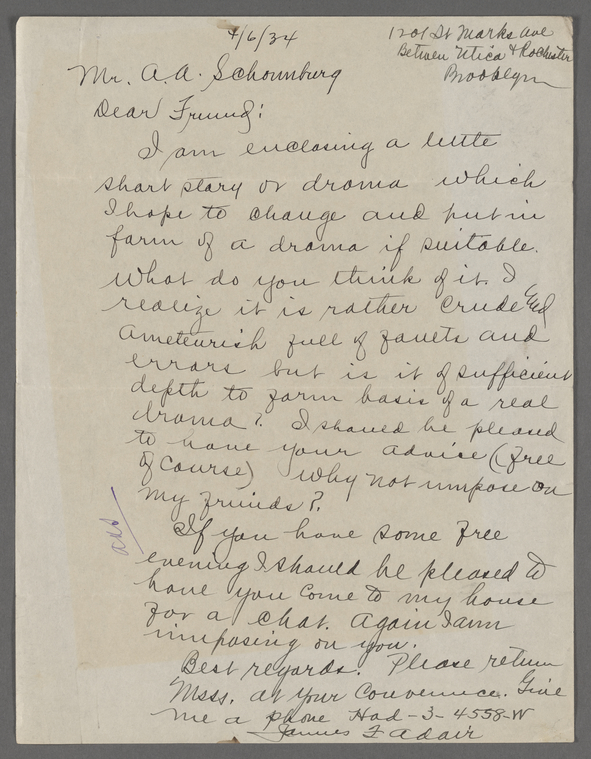 4/6/34
1201 St Marks Ave
Between Utica & Rochester
Brooklyn
Mr. A. A. Schomburg
Dear Friend:
I am enclosing a little
short story or drama which
I hope to change and put in
form of a drama if suitable.
What do you think of it. I
realize it is rather crude and
Ameteurish full of faults and
errors but is it of sufficient
depth to form basis of a real
drama? I should be pleased
to have your advise (free
of course) Why not impose on
my friends?
If you have some free
evening I should be pleased to
have you come to my house
for a chat. Again I am
imposing on you.
Best regards. Please return
Mss. at your convenience. Give
me a phone Had-3-4558-W
James F Adair
aas